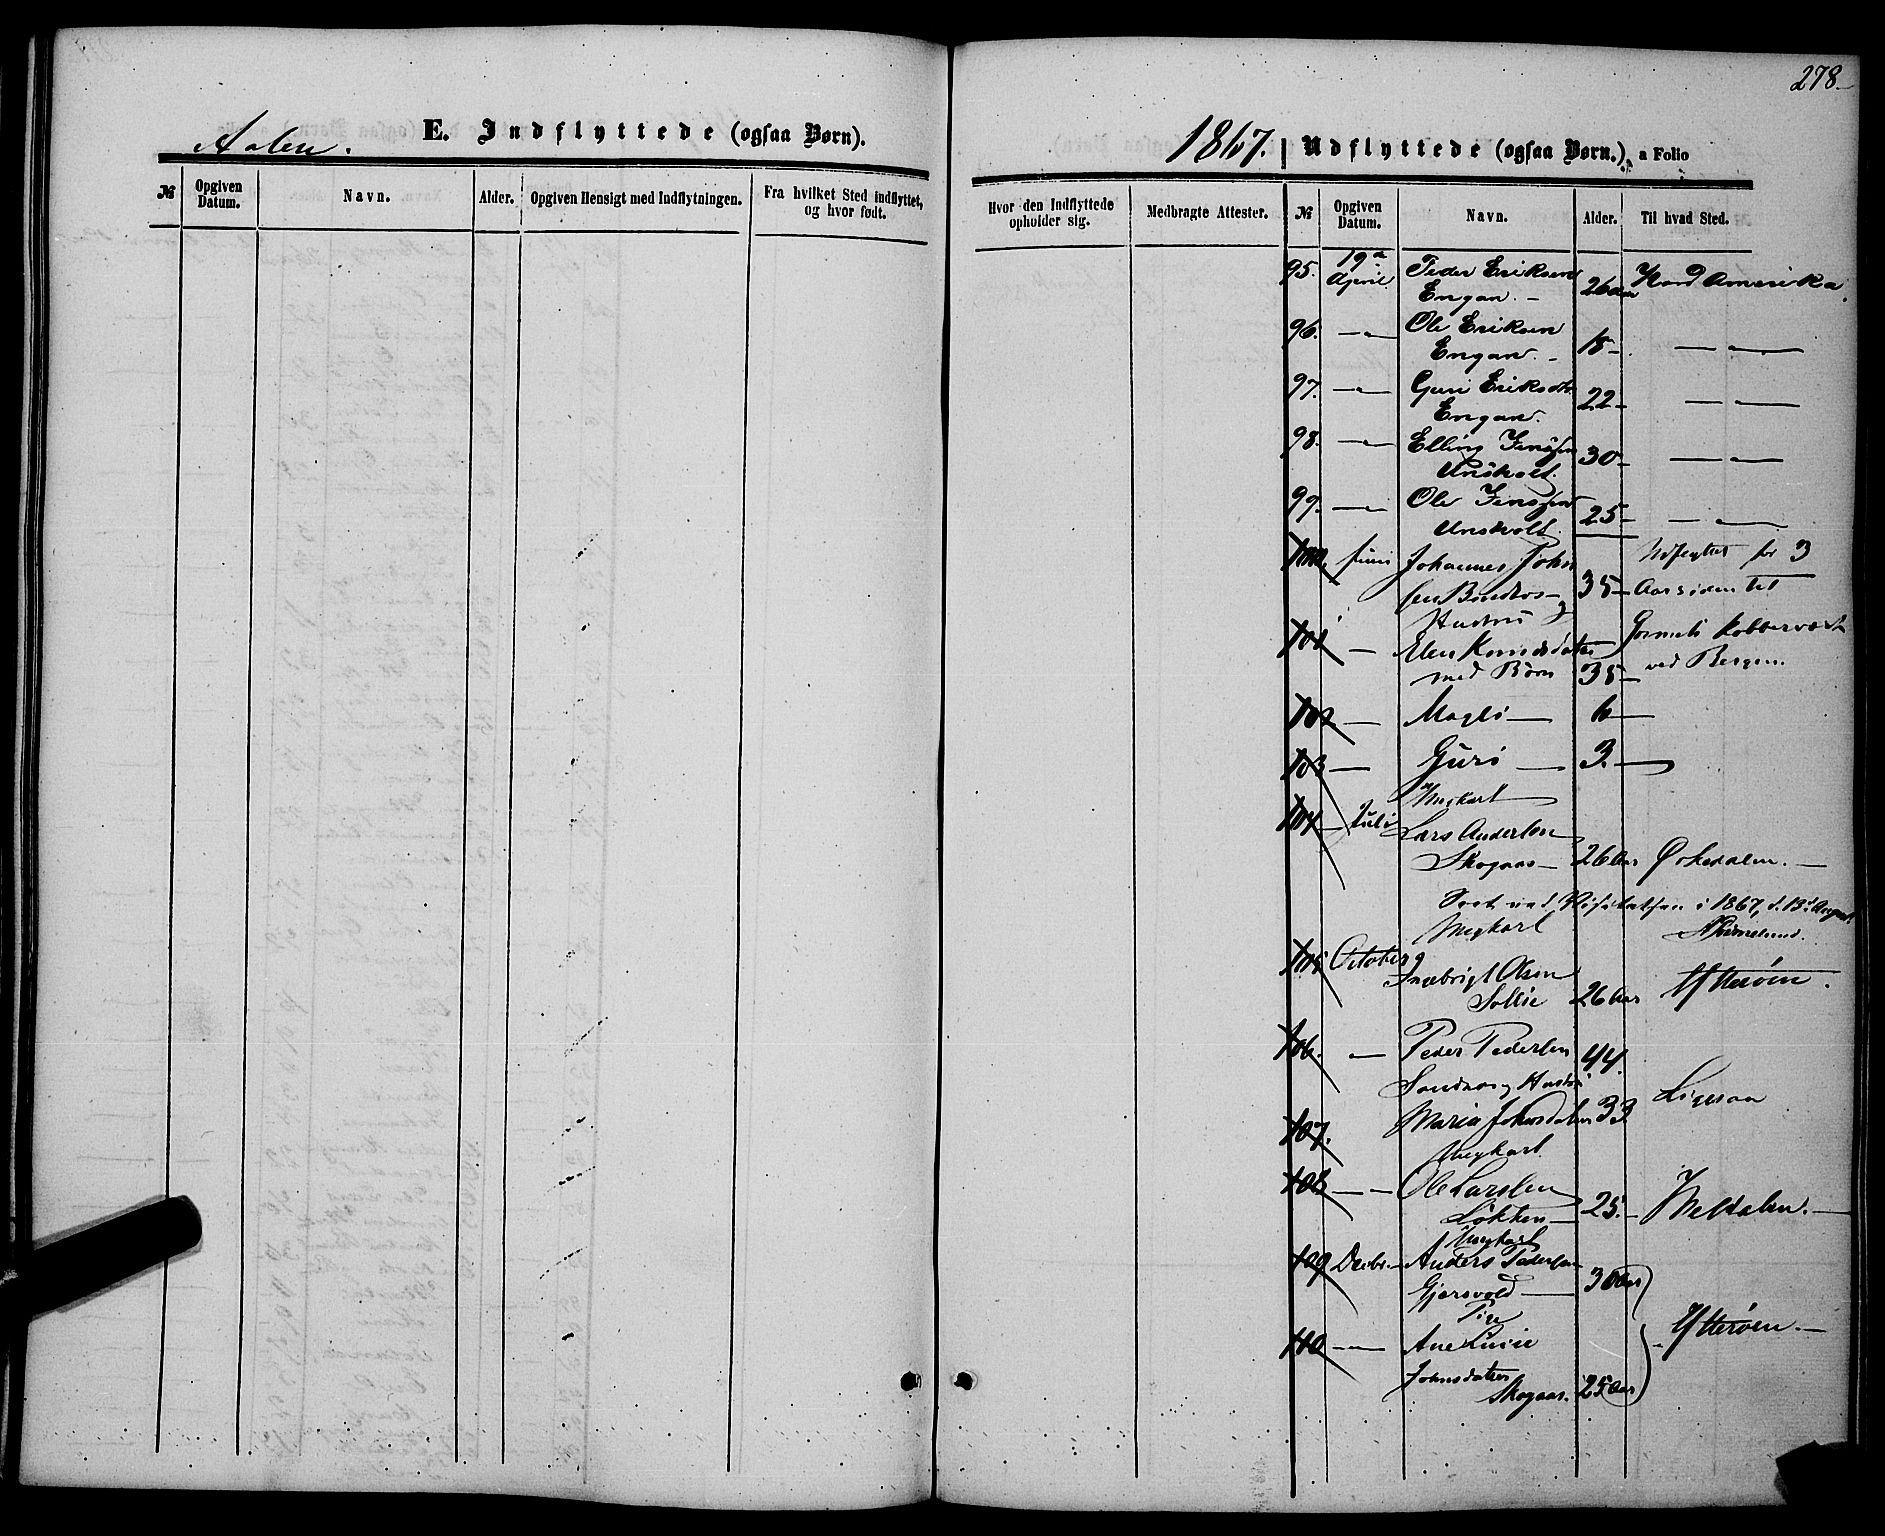 278
Aalen.
E. Indflyttede (ogsaa Børn).
1867.
Udflyttede (ogsaa Børn.), a Folio
№
Opgiven Datum.
Navn.
Alder.
Opgiven Hensigt med Indflytningen.
Fra hvilket Sted indflyttet, og hvor født.
Hvor den Indflyttede opholder sig.
Medbragte Attester.
№
Opgiven Datum.
Navn.
Alder.
Til hvad Sted.
95. 19de April. Peder Eriksen
Engan. — 26 Aar Nord Amerika.
96. —"— Ole Eriksen
Engan. — 18 — —"—
97. —"— Guri Eriksdtr
Engan. 22 — —"—
98. —"— Elling Jensen
Unsholt. 30 — —"—
99. —"— Ole Jensen
Unsholt. 25 — —"—
100. Juni Johannes John
sen 35 — Udflyttet for 3
Aar siden til
Hustru
101 — Elen
med Børn 35 — Kobberværk
ved Bergen.
102 — Magli — 6 —
103 — Guri — 3. —
Ungkarl
104 — Juli Lars Andersen
Skogaas — 26 Aar Ørkedalen. —
Seet ved Visitatsen i 1867, d. 13de August
Ungkarl
105 October Ingebrigt Olsen
Sollie 26 Aar Ytterøen.
106. — Peder Pedersen 44.
og Hustru
Ligesaa
107. Maria Johnsdatter 33
Ungkarl
108 — — Ole Larsen
Løkken — 25. — Meldalen. —
Ungkarl
109 Decbr. — Anders Pedersen
Gjersvold — 30 Aar
Pige
110 —"— Ane Luise
Ytterøen. —
Johnsdatter
Skogaas. 25 Aar